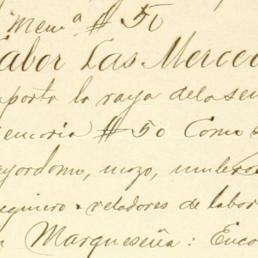 Mem.ª # 50
Labor Las Merced
mporta la raya de la sem
emoria # 50 Como s
yordomo, mozo,
eguinero. veladores de labor
Marqueseña: Enco